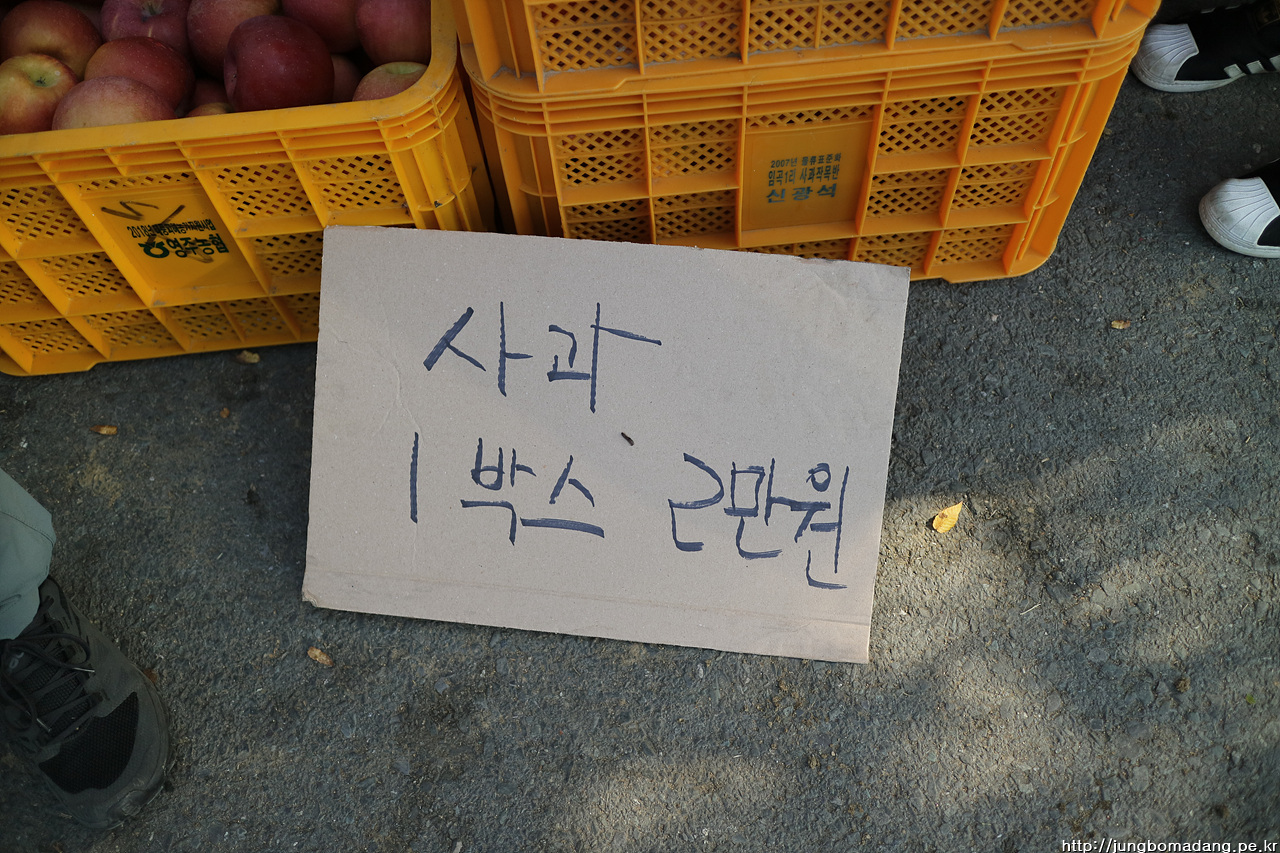 2007년
임곡1리 사과작목반
신광석
영주농협
사과
1박스 2만원
http://jungbomadang.pe.kr